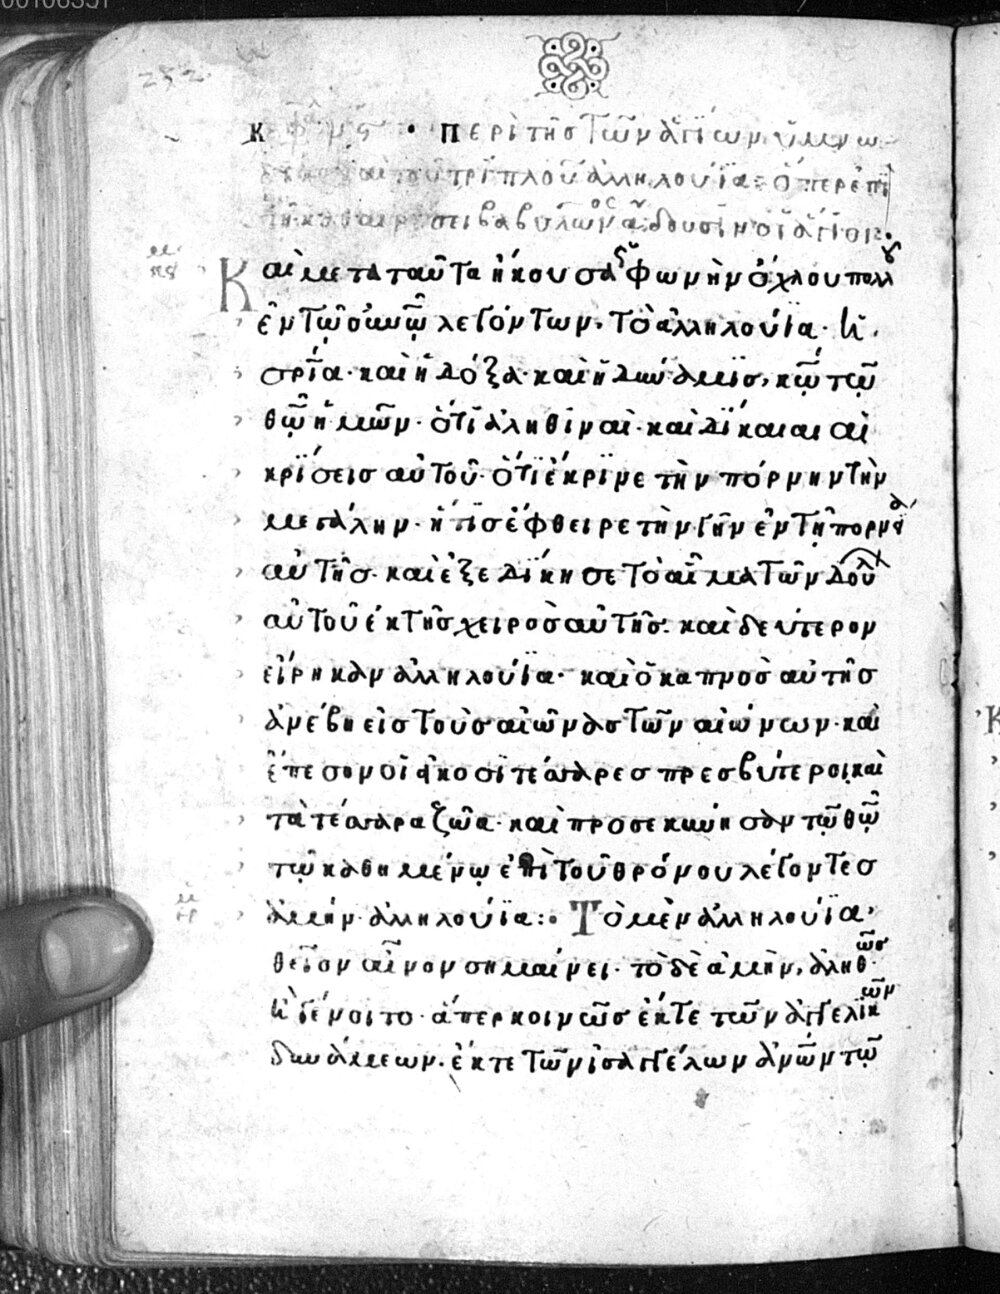 252
Κ · Περὶ τῆς τῶν ἁγίων ὑμνω
τοῦ τριπλοῦ ἀλληλούϊα: ὅπερ ἐπὶ
τῇ καθαιρέσει βαβυλῶνος ᾄδουσιν οἱ ἅγιοι:
Καὶ μετὰ ταῦτα ἤκουσα ὡς φωνὴν ὄχλου πολλοῦ
ἐν τῷ οὐνῷ λεγόντων· τὸ ἀλληλούϊα· ἡ
σρία· καὶ ἡ δόξα· καὶ ἡ δύναμις, κῶ τῷ
θῶ ἡμῶν· ὅτι ἀληθιναὶ· καὶ δίκαιαι αἱ
κρίσεις αὐτοῦ· ὅτι ἔκρινε τὴν πόρνην τὴν
μεγάλην· ἥτις ἔφθειρε τὴν γῆν ἐν τῇ πορνεία
αὐτῆς· καὶ ἐξεδίκησε τὸ αἷμα τῶν δούλ
αὐτοῦ ἐκ τῆς χειρὸς αὐτῆς· καὶ δεύτερον
εἴρηκαν ἀλληλούϊα· καὶ ὁ καπνὸς αὐτῆς
ἀνέβη εἰς τοὺς αἰῶνας τῶν αἰώνων· καὶ
ἔπεσον οἱ εἴκοσι τέσσαρες πρεσβύτεροι, καὶ
τὰ τέσσαρα ζῶα· καὶ προσεκύνησαν τῷ θῶ
τῷ καθημένῳ ἐπὶ τοῦ θρόνου λέγοντες
ἀμήν· ἀλληλούϊα:· Τὸ μὲν ἀλληλούϊα·
θεῖον αἶνον σημαίνει· τὸ δὲ ἀμὴν, ἀληθῶς·
ἢ γένοιτο· ἅπερ κοινῶς ἔκ τε τῶν ἀγγελικῶν
δυνάμεων· ἔκ τε τῶν ἰσαγγέλων ἀνῶν τῷ